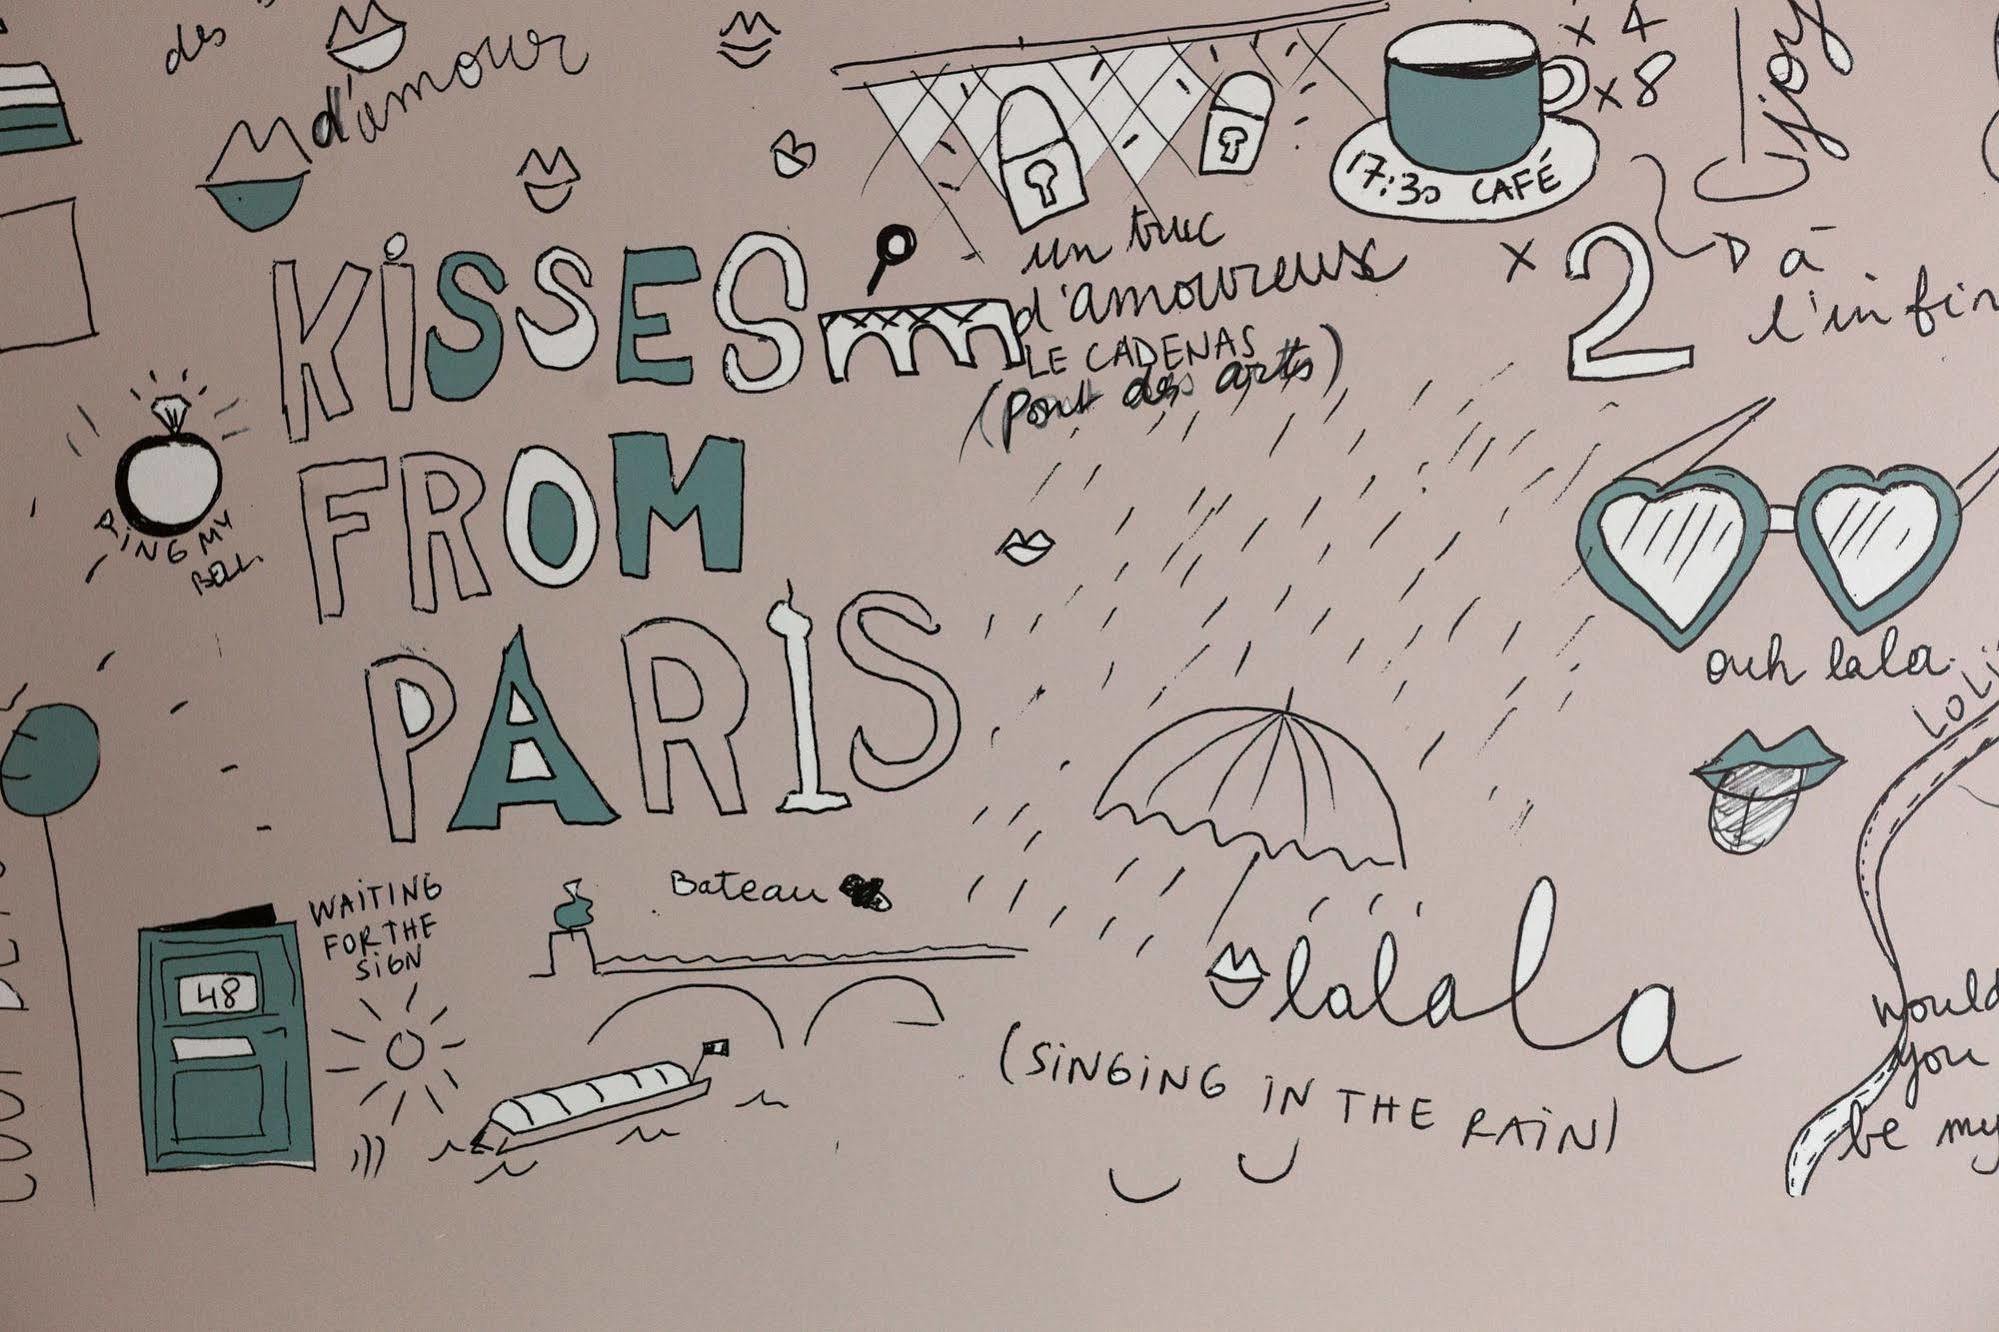 des
d'amour
x 4
x 8
joy
17:30 CAFÉ
un truc
d'amoureux
LE CADENAS
(Pont des arts)
x 2
à
l'infin
KISSES
FROM
PARIS
RING MY
BELL
ouh lala
LOLI
WAITING
FOR THE
SIGN
48
Bateau
lalalala
(SINGING IN THE RAIN)
would
you
be my